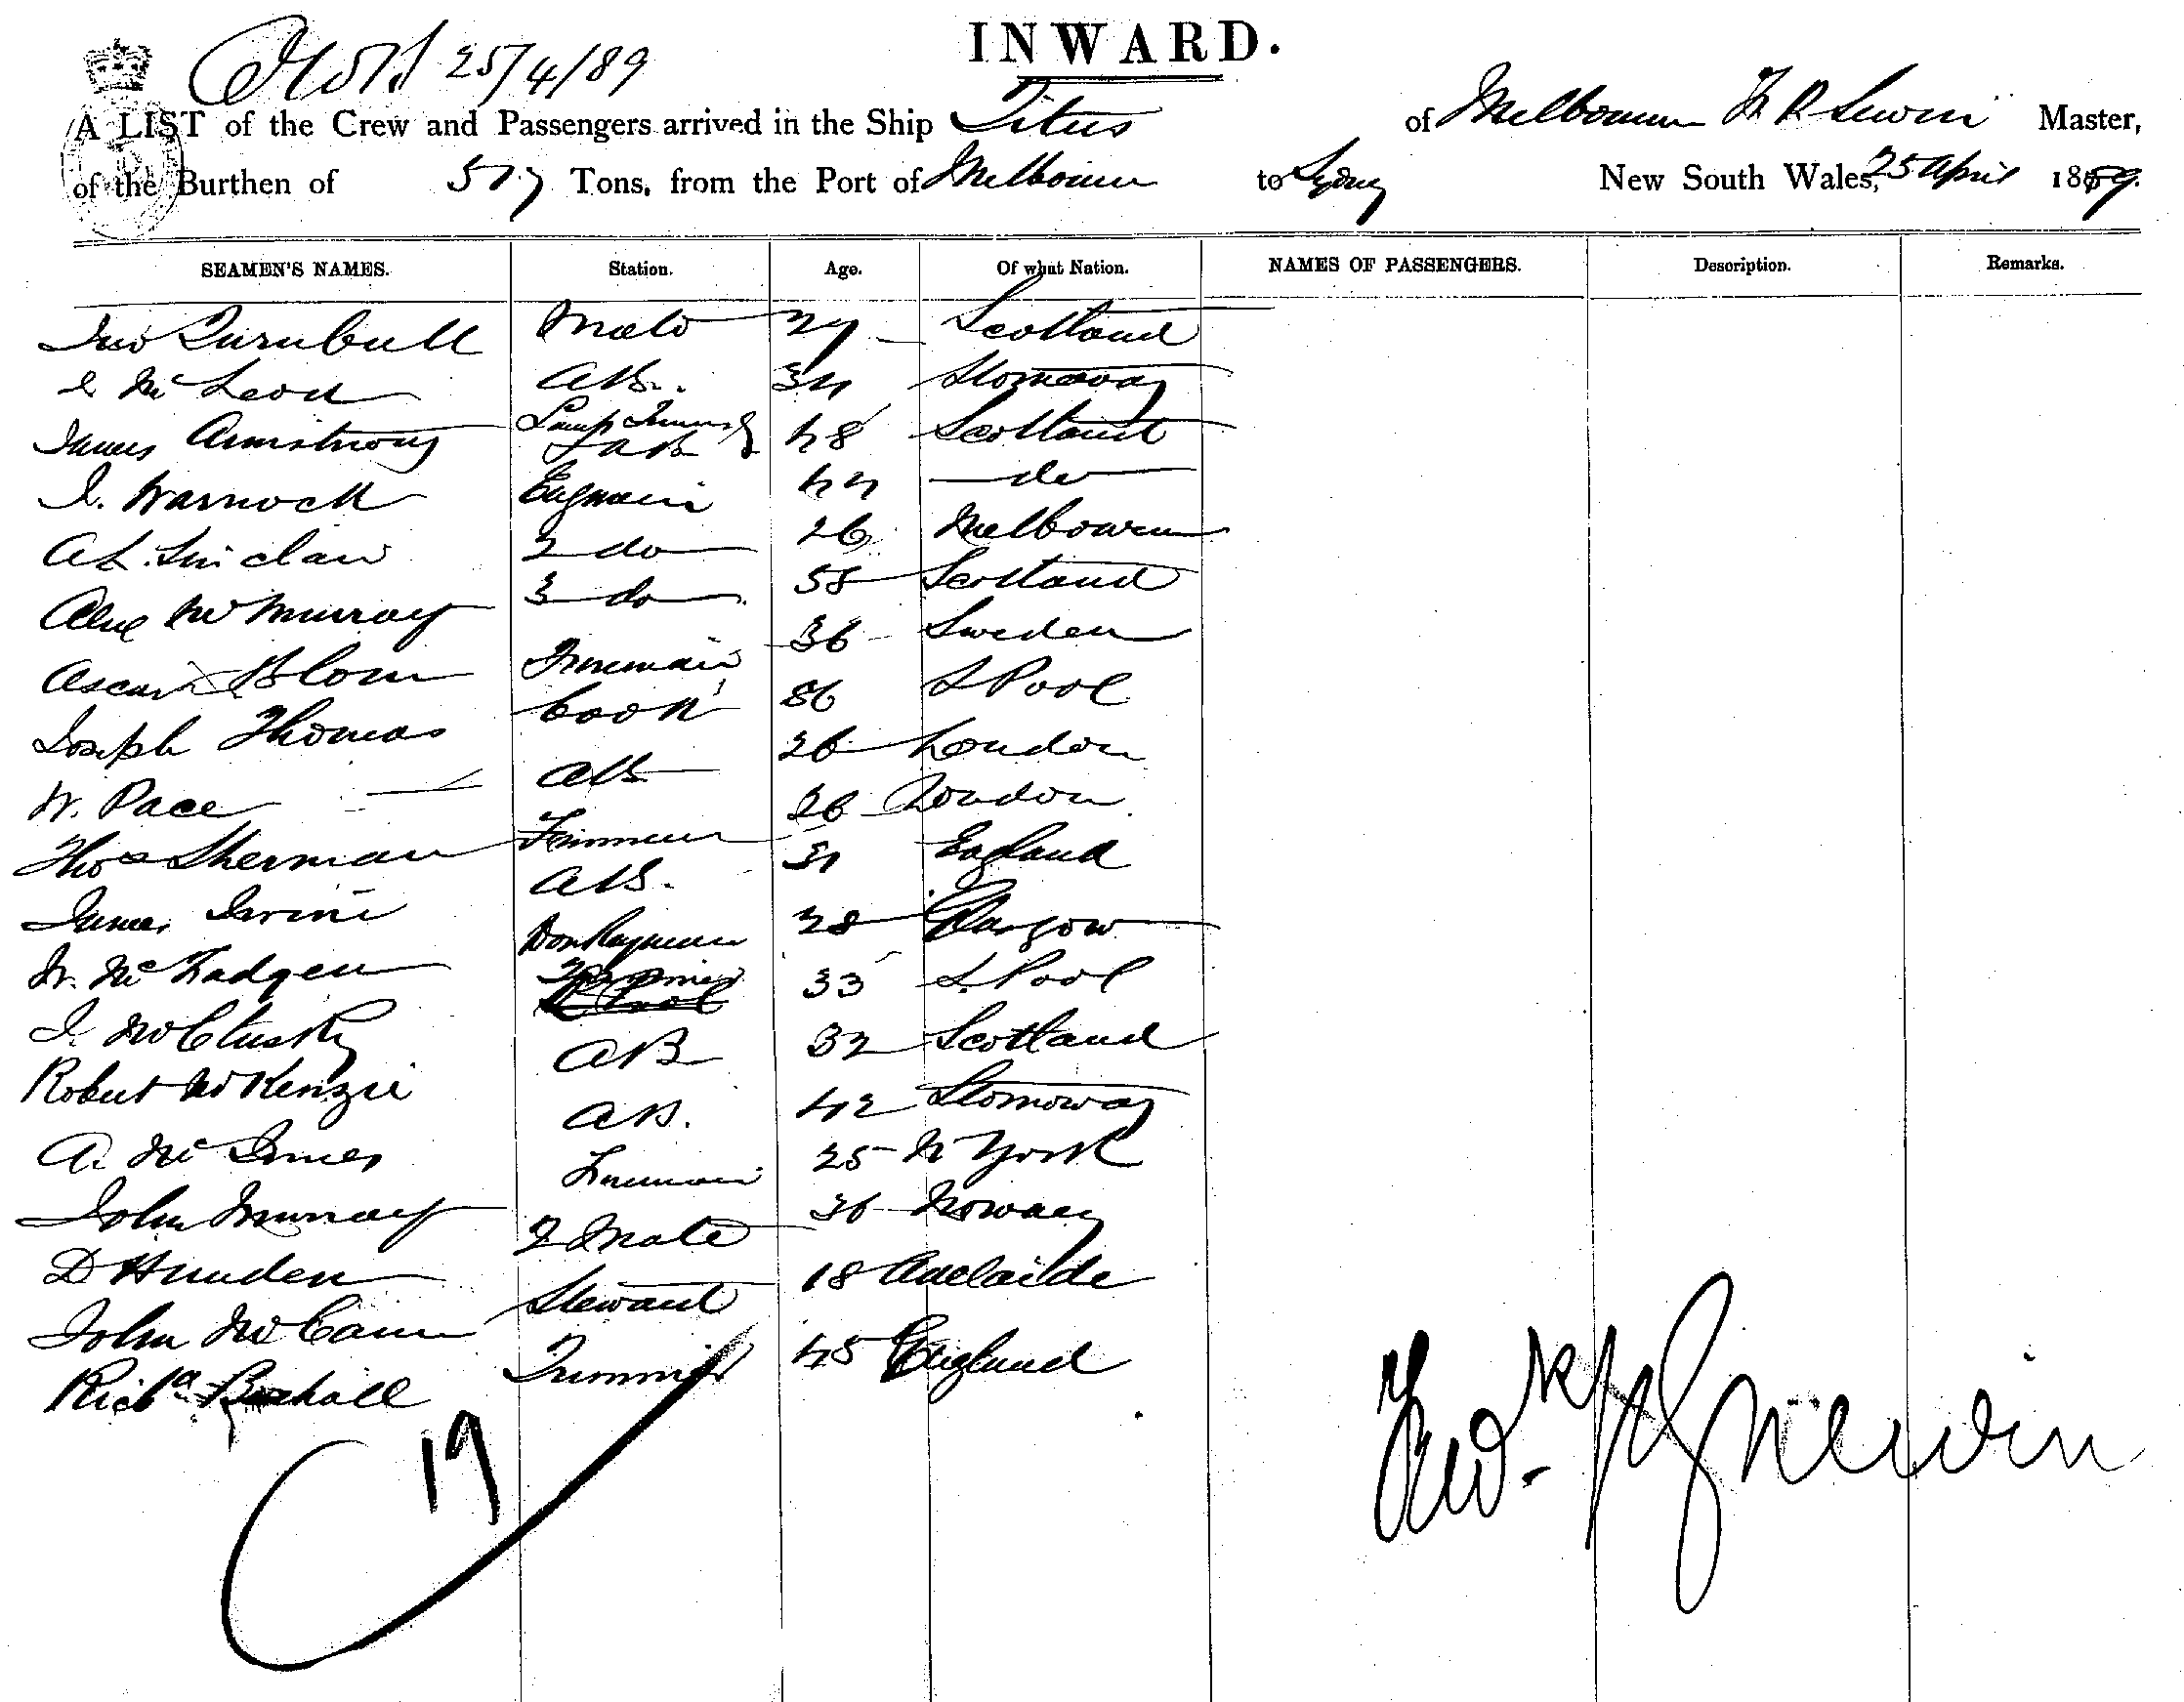 INWARD.
25/4/89
A LIST of the Crew and Passengers arrived in the Ship Titus of Melbourne Master,
of the Burthen of 517 Tons, from the Port of Melbourne to Sydney New South Wales, 25 April 1889.
SEAMEN'S NAMES. Station. Age. Of what Nation. NAMES OF PASSENGERS. Description. Remarks.
Jno Turnbull Mate 29 Scotland
McLeod AB. 34 Stornoway
James Armstrong Lamp Trimmer & AB 48 Scotland
J. Warnock Engineer 44 do
A L. Sinclair 2 do 26 Melbourne
Alex McMurray 3 do 58 Scotland
Ascar Blom Fireman 36 Sweden
Joseph Thomas Cook 36 L Pool
W. Pace AB 26 London
Thos Sherman Fireman 26 London
James Irvine AB. 31 England
W. McFadgen Donkeyman 28 Glasgow
J. McClusky Trimmer 33 L. Pool
Robert McKenzie AB 32 Scotland
A. McInnes AB. 42 Stornoway
John Murray Fireman 25 N York
D Hunden 2 Mate 36 Norway
John McCann Steward 18 Adelaide
Richd Boxhall Trimmer 45 England
19